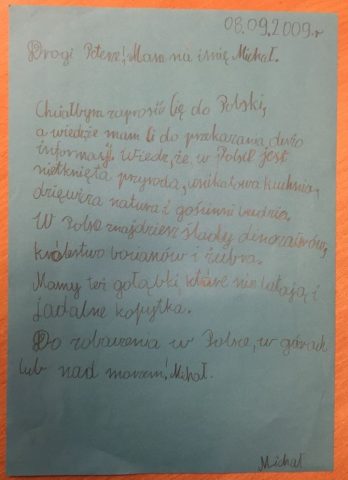 08.09.2009.r
Drogi Peterze! Mam na imię Michał.
Chciałbym zaprosić Cię do Polski,
a wiedzże mam Ci do przekazania dużo
informacji. Wiedz, że w Polsce jest
nietknięta przyroda, unikatowa kuchnia,
dziewicza natura i gościnni ludzie.
W Polsce znajdziesz ślady dinozaurów,
królestwo bocianów i żubra.
Mamy też gołąbki, które nie latają i
jadalne kopytka.
Do zobaczenia w Polsce, w górach
lub nad morzem! Michał.
Michał